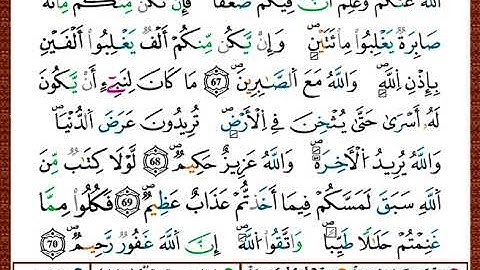 ٱللَّهُ عَنكُمۡ وَعَلِمَ أَنَّ فِيكُمۡ ضُعۡفٗا فَإِن تَكُن مِّنكُم مِّاْئَةٞ
صَابِرَةٞ يَغۡلِبُواْ مِاْئَتَيۡنِۖ وَإِن يَكُن مِّنكُمۡ أَلۡفٞ يَغۡلِبُوٓاْ أَلۡفَيۡنِ
بِإِذۡنِ ٱللَّهِۗ وَٱللَّهُ مَعَ ٱلصَّٰبِرِينَ 67 مَا كَانَ لِنَبِيٍّ أَن يَكُونَ
لَهُۥٓ أَسۡرَىٰ حَتَّىٰ يُثۡخِنَ فِي ٱلۡأَرۡضِۚ تُرِيدُونَ عَرَضَ ٱلدُّنۡيَا
وَٱللَّهُ يُرِيدُ ٱلۡأٓخِرَةَۗ وَٱللَّهُ عَزِيزٌ حَكِيمٞ 68 لَّوۡلَا كِتَٰبٞ مِّنَ
ٱللَّهِ سَبَقَ لَمَسَّكُمۡ فِيمَآ أَخَذتُّمۡ عَذَابٌ عَظِيمٞ 69 فَكُلُواْ مِمَّا
غَنِمۡتُمۡ حَلَٰلٗا طَيِّبٗاۚ وَٱتَّقُواْ ٱللَّهَۚ إِنَّ ٱللَّهَ غَفُورٞ رَّحِيمٞ 70